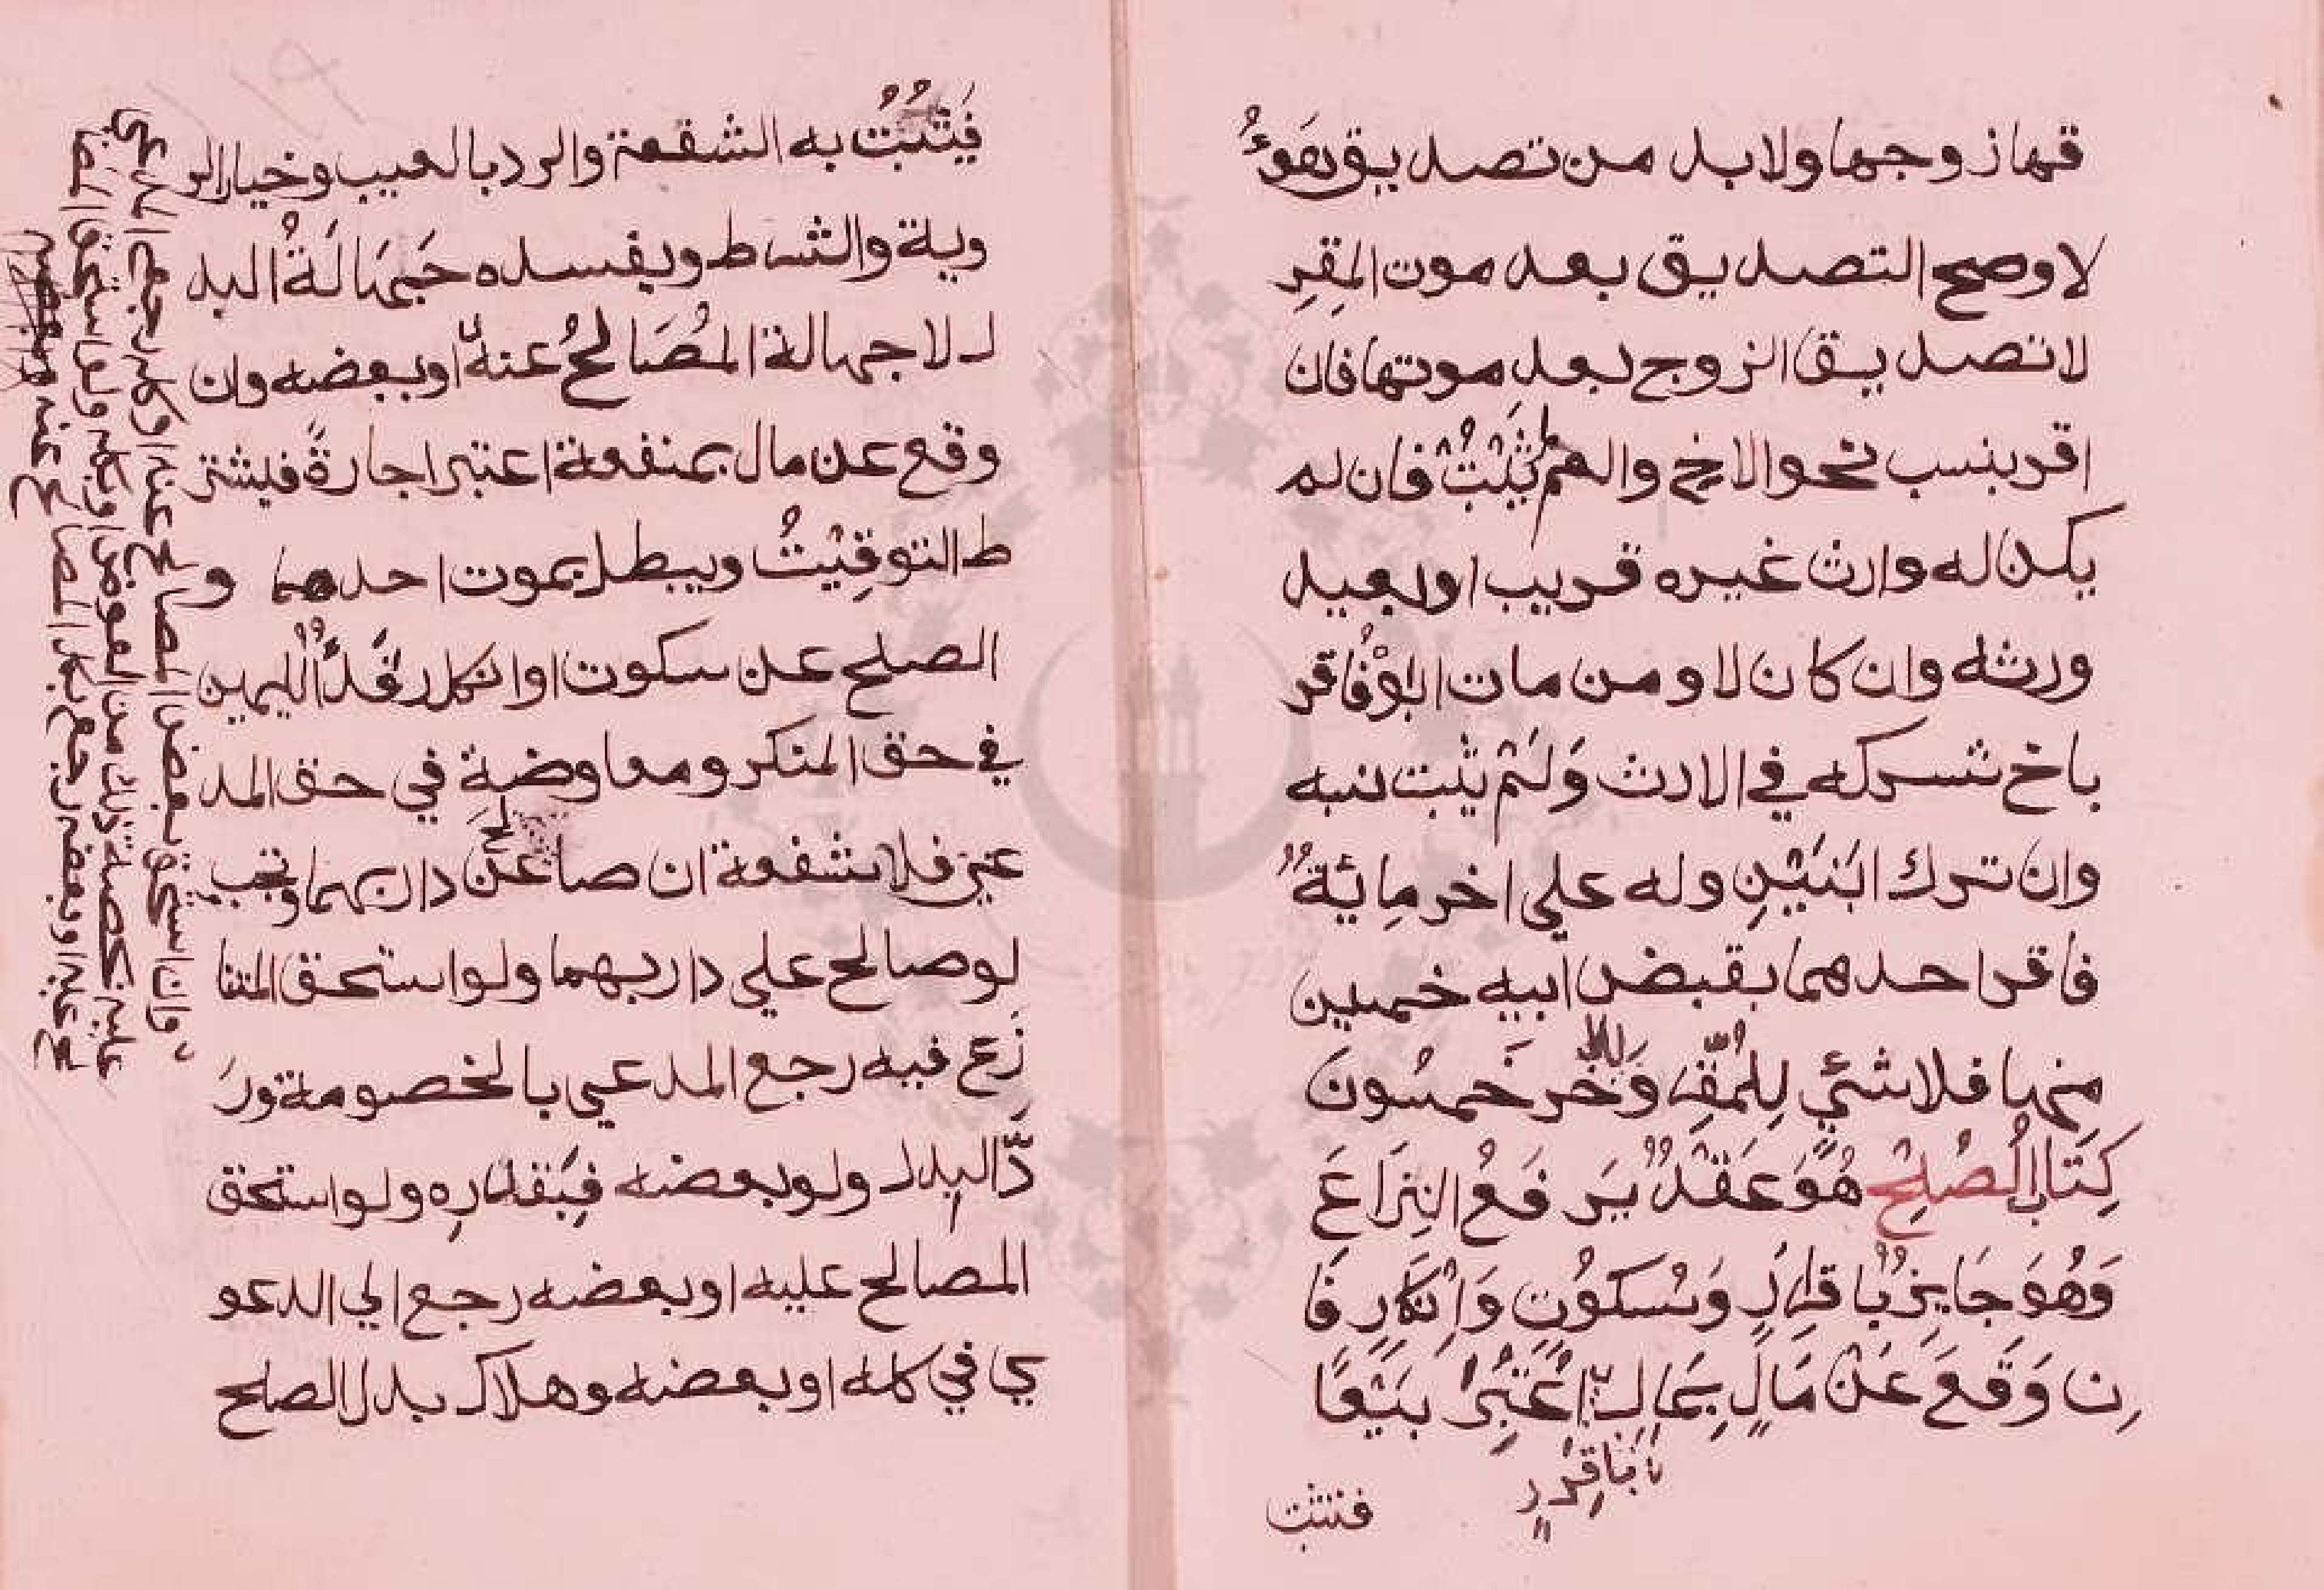 قها زوجها ولابد من تصديق هؤ
لا وصح التصديق بعد موت المقِرِ
لا تصديق الزوج بعد موتها فان
اقر بنسب نحو الاخ والعم لم يَثْبُتْ فان لم
يكن له وارث غيره قريب او بعيد
ورثه وان كان لا ومن مات ابوْهُ فاقر
باخ شركه في الارث وَلَمْ يثبت نسبه
وان ترك ابنَيْنِ وله علي اخر مِائةٌ
فاقر احدهما بقبض ابيه خمسين
منها فلا شئي لِلْمُقِّرِ وَللاخَر خَمسُونَ
كِتَابُ الصُلْحِ هُوَ عَقْدٌ يَرفَعُ النِزَاعَ
وَهُوَ جَايِزٌ بِاقرَارٍ وَسُكوُتٍ وَاِنْكَارٍ فَا
ِن وَقَعَ عَنْ مَالٍ بِمَالٍ اُعْتُبِرَ بَيْعًا
بِاقِرَارٍ
فتثبت
فَيَثْبُتُ به الشفعة والرد بالعيب وخيار الر
وية والشرط ويفسده جَهَالَةُ البد
ل لا جهالة المُصَالحُ عنهُ او بعضه وان
وقع عن مال بمنفعة اعتبر اجارةً فيشتر
ط التوقِيْتُ ويبطل بموت احدهما و
الصلح عن سكوت او انكار فِدَاٌ لليمين
في حق المنكر ومعاوضة في حق المد
عي فلا شفعة ان صالح عَنْ دار بهما وتجب
لو صالح علي دار بهما ولو استحق المتنا
زَع فيه رجع المدعي بالخصومة ورَ
دَّ البدل ولو بعضه فبِقَدْرِه ولو استحق
المصالح عليه او بعضه رجع الي الدعو
ي في كله او بعضه وهلاك بدل الصلح
وان استحق بعض المصالح عنه او كله رجع المدعي
عليه بحصة ذلك من العوض او كله ولو استحق المصا
ح عليه او بعضه رجع بكل المصالح عنه